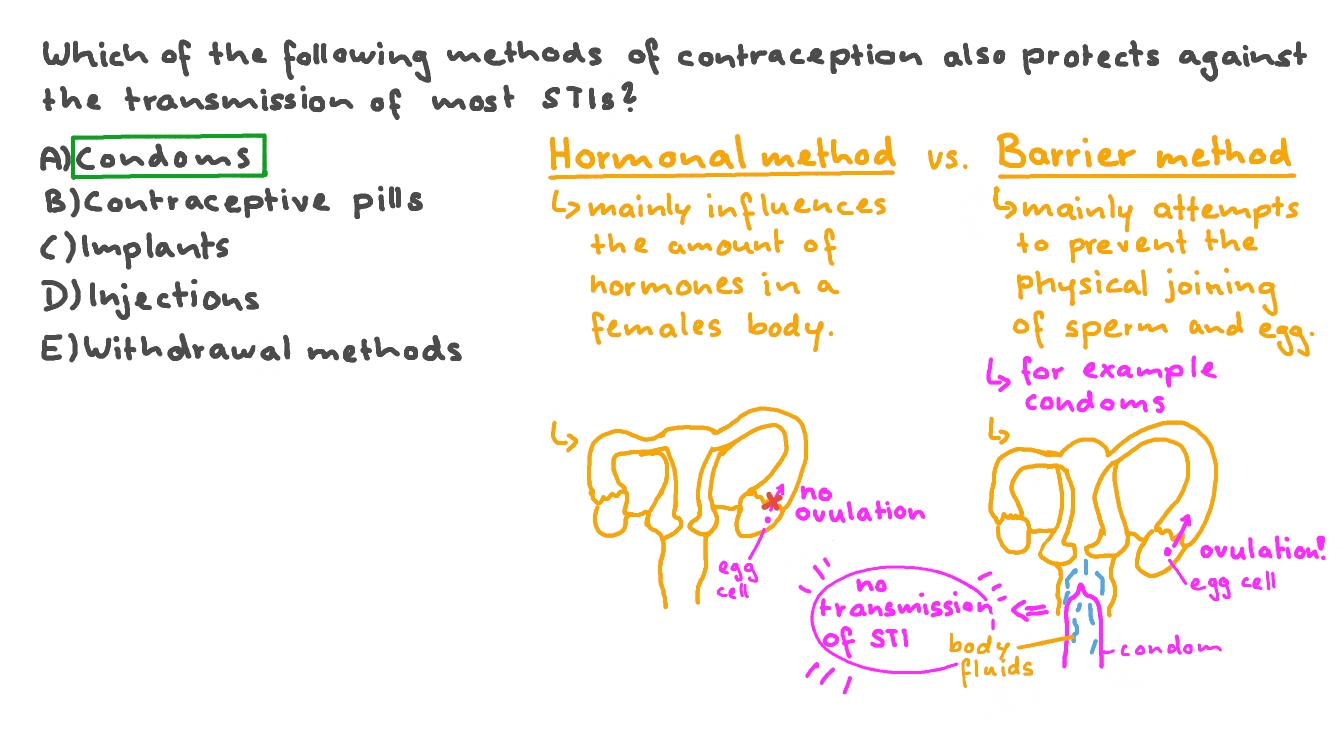 Which of the following methods of contraception also protects against
the transmission of most STIs?
A) Condoms
B) Contraceptive pills
C) Implants
D) Injections
E) Withdrawal methods
Hormonal method vs. Barrier method
↳ mainly influences
the amount of
hormones in a
females body.
↳ mainly attempts
to prevent the
physical joining
of sperm and egg.
↳ for example
condoms
↳
no
ovulation
egg
cell
↳
ovulation!
egg cell
no
transmission
of STI
<=
body
fluids
condom